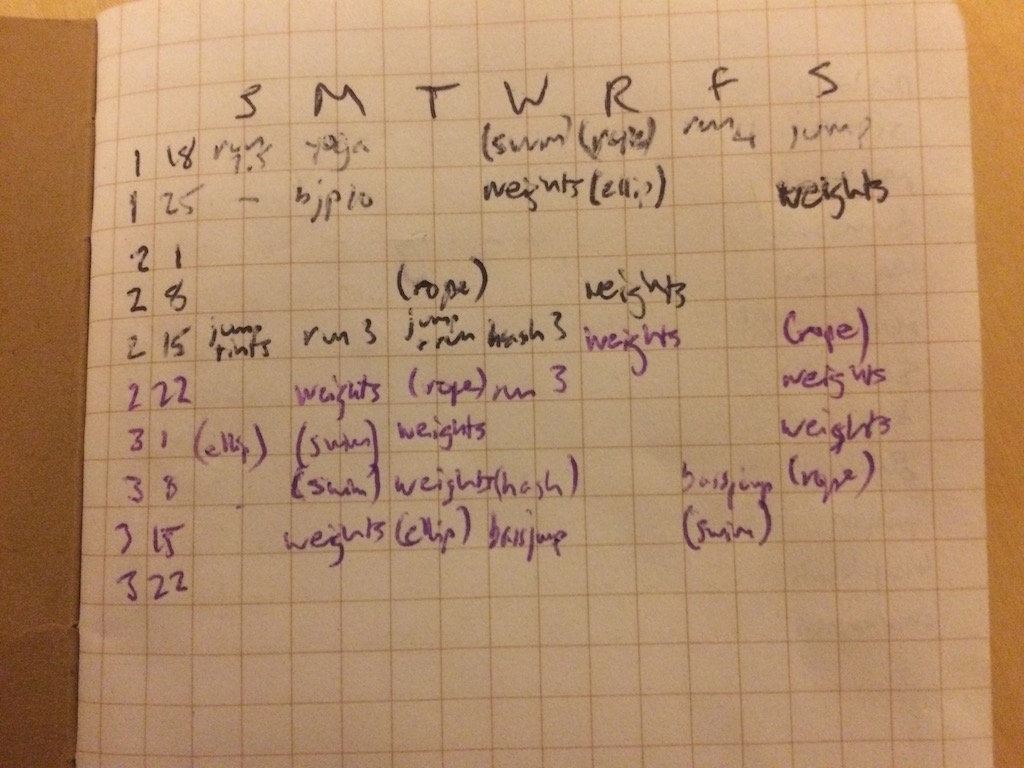 S M T W R F S
1 18 run 7.5 yoga (swim) (rope) run 4 jump
1 25 - bjp10 weights (ellip) weights
2 1
2 8 (rope) weights
2 15 jump rints run 3 jump + run hash 3 weights (rope)
2 22 weights (rope) run 3 weights
3 1 (ellip) (swim) weights weights
3 8 (swim) weights (hash) bassjump (rope)
3 15 weights (ellip) bassjump (swim)
3 22